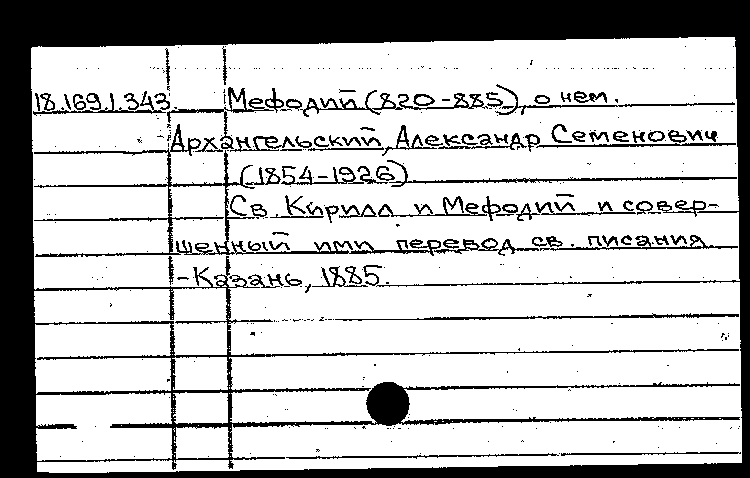 18.169.1.343. Мефодий (820-885), о нем.
Архангельский, Александр Семенович
(1854-1926)
Св. Кирилл и Мефодий и совер-
шенный ими перевод св. писания
-Казань, 1885.